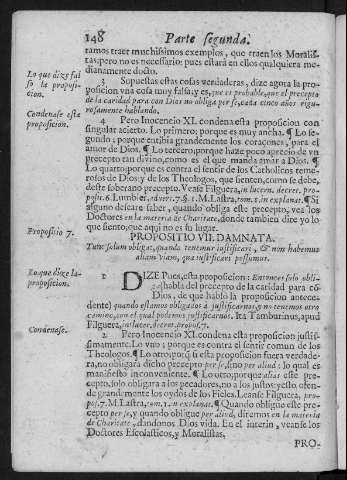 148 Parte segunda.
ramos traer muchissimos exemplos, que traen los Moralis-
tas; pero no es necessario: pues estarà en ellos qualquiera me-
dianamente docto.
Lo que dize fal
so la proposi-
cion.
3 Supuestas estas cosas verdaderas, dize agora la pro-
posicion vna cosa muy falsa; y es, que es probable, que el precepto
de la caridad para con Dios no obliga per se, cada cinco años rigu-
rosamente hablando.
Condenase esta
proposicion.
4 Pero Inocencio XI. condena esta proposicion con
singular acierto. Lo primero; porque es muy ancha. ¶ Lo se-
gundo; porque entibia grandemente los coraçones, para el
amor de Dios. ¶ Lo tercero; porque haze poco aprecio de vn
precepto tan divino, como es el que manda amar a Dios. ¶
Lo quarto; porque es contra el sentir de los Catholicos teme-
rosos de Dios; y de los Theologos, que sienten, como se debe,
deste soberano precepto. Vease Filguera, in lucern. decret. propo-
posit. 6. Lumbier, advert. 7. §. 1. M. Lastra, tom. 1. in explanat. ¶ Si
alguno desease saber, quando obliga este precepto, vea los
Doctores en la materia de Charitate, donde tambien dize yo lo
que siento, que aqui no es su lugar.
Propositio 7.
PROPOSITIO VII. DAMNATA.
Tunc solum obligat, quando tenemur justificari, & non habemus
aliam viam, qua justificari possumus.
Lo que dize la
proposicion.
1 DIZE Pues, esta proposicion: Entonces solo obli-
ga (habla del precepto de la caridad para cõ
Dios, de que hablò la proposicion antece-
dente) quando estamos obligados à justificarnos, y no tenemos otro
camino, con el qual podemos justificarnos. Ita Tamburinus, apud
Filguera, in lucer. decret. propos. 7.
Condenase.
2 Pero Inocencio XI. condena esta proposicion justis-
simamente. Lo vno; porque es contra el sentir comun de los
Theologos. ¶ Lo otro; porq̃ si esta proposicion fuera verdade-
ra, no obligara dicho precepto per se, sino per aliud: lo qual es
manifiesta inconveniente. ¶ Lo otro; porque alias este pre-
cepto, solo obligara a los pecadores, no a los justos; y esto ofen-
de grandemente los oydos de los Fieles. Leanse Filguera, pro-
pos. 7. M. Lastra, tom. 1. in explanat. ¶ Quando obligue este pre-
cepto per se, y quando obligue per aliud, diremos en la materia
de Charitate, dandonos Dios vida. En el interin, veanse los
Doctores Escolasticos, y Moralistas.
PRO-